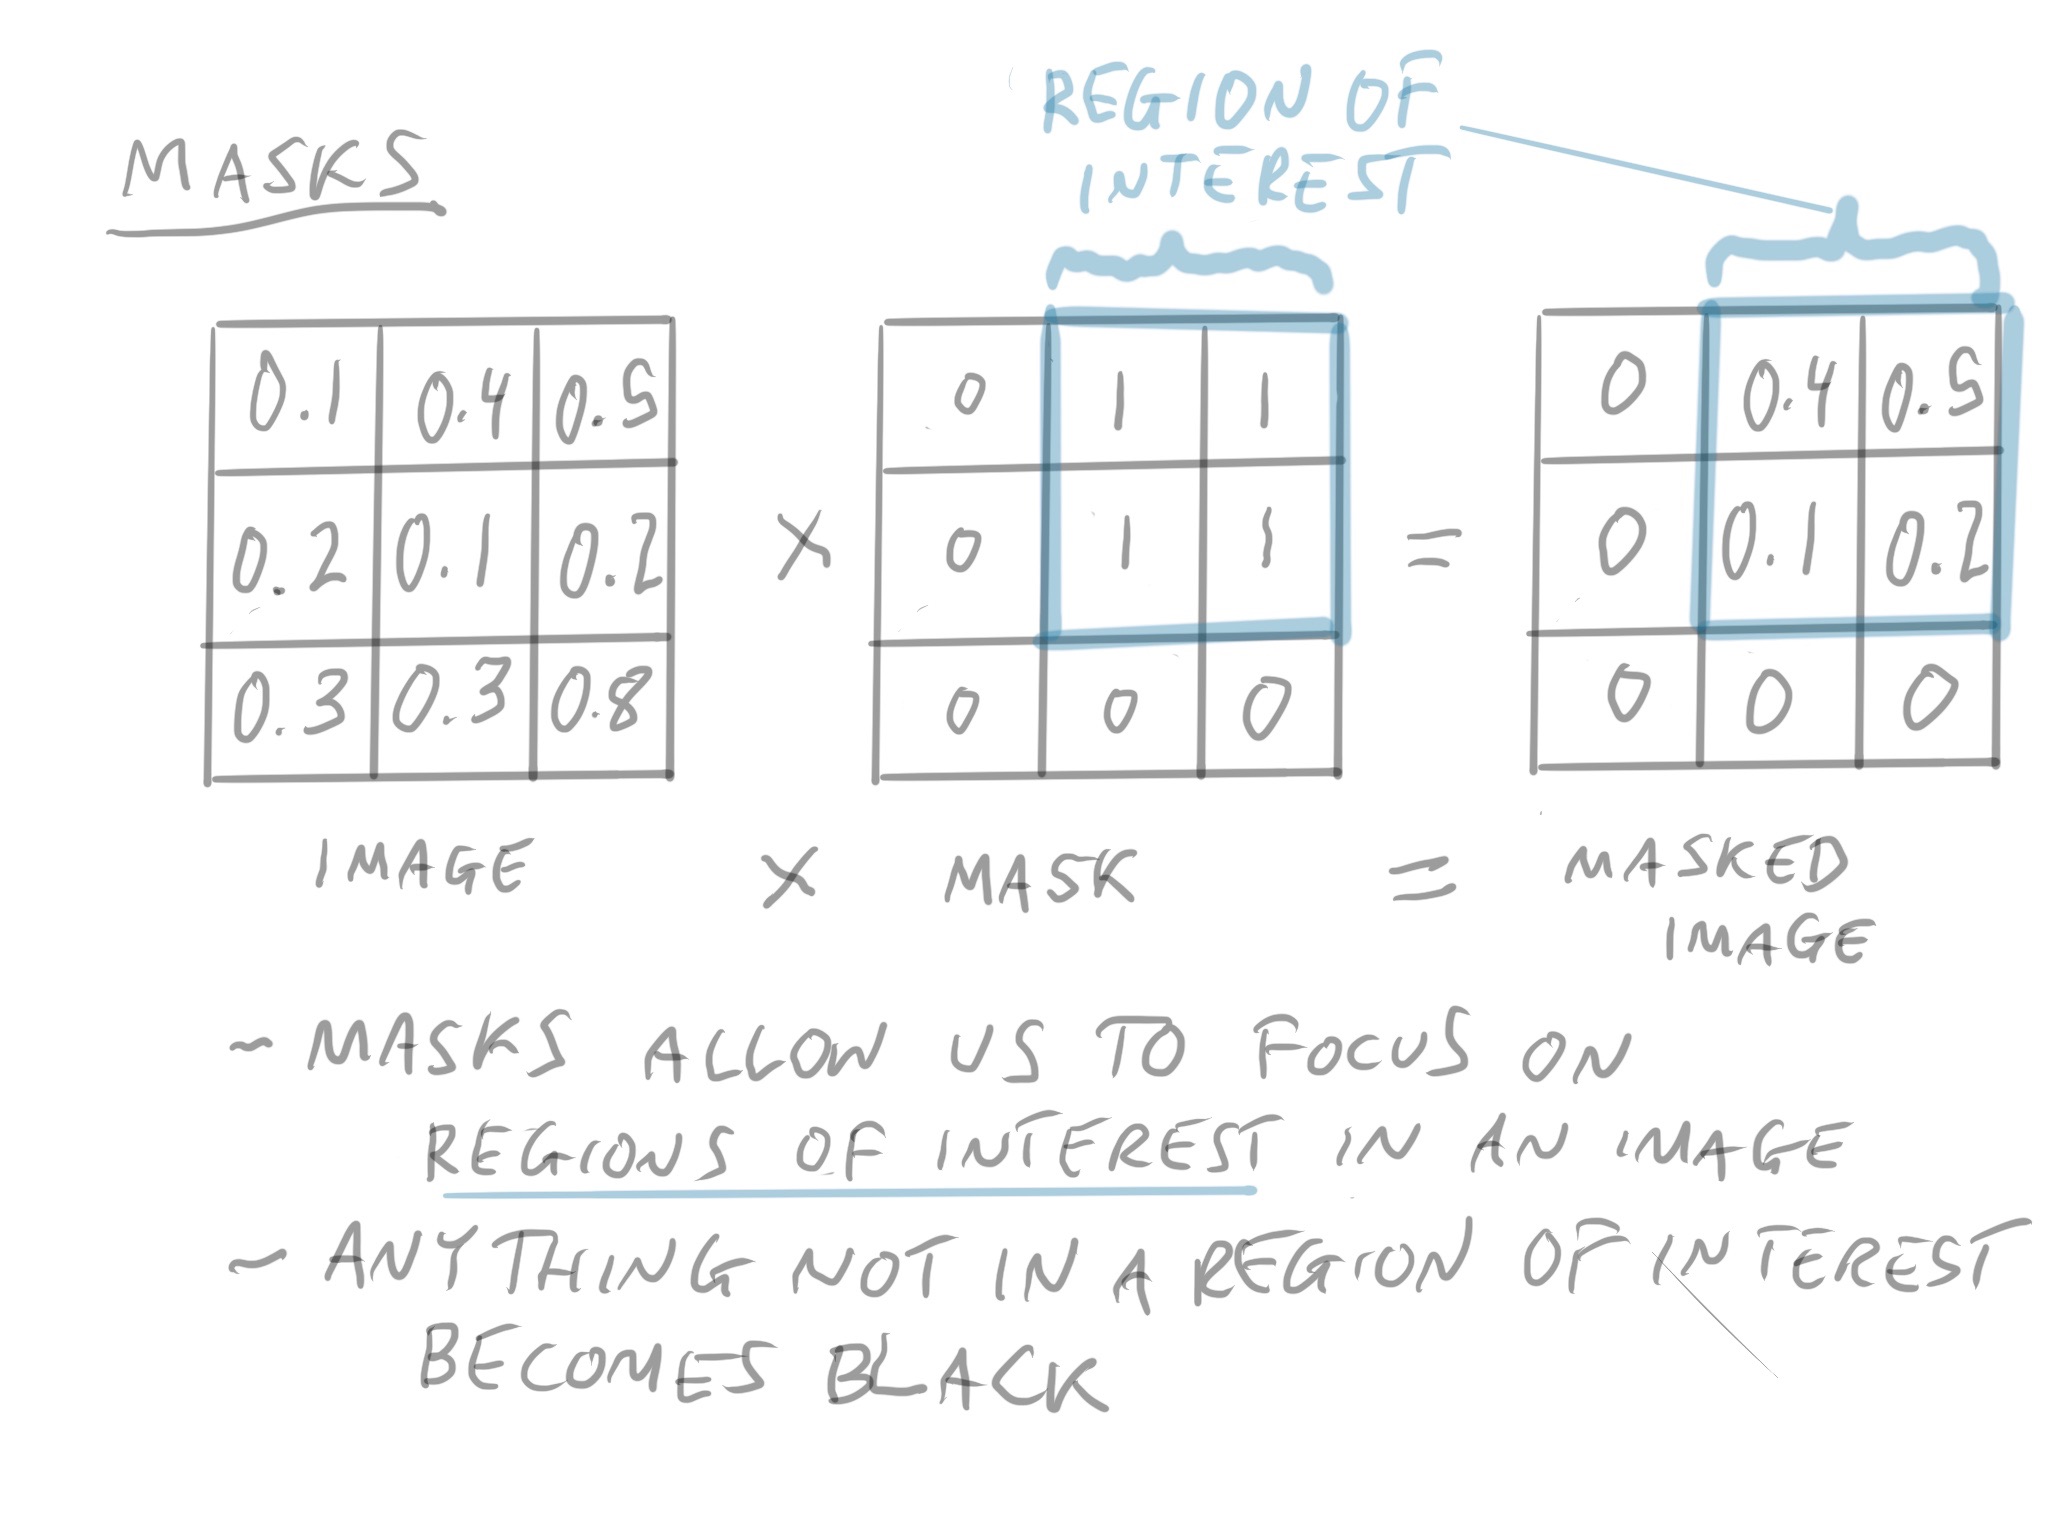 MASKS
REGION OF
INTEREST
0.1 0.4 0.5 0 1 1 0 0.4 0.5
0.2 0.1 0.2 X 0 1 1 = 0 0.1 0.2
0.3 0.3 0.8 0 0 0 0 0 0
IMAGE X MASK = MASKED
IMAGE
~ MASKS ALLOW US TO FOCUS ON
REGIONS OF INTEREST IN AN IMAGE
~ ANYTHING NOT IN A REGION OF INTEREST
BECOMES BLACK